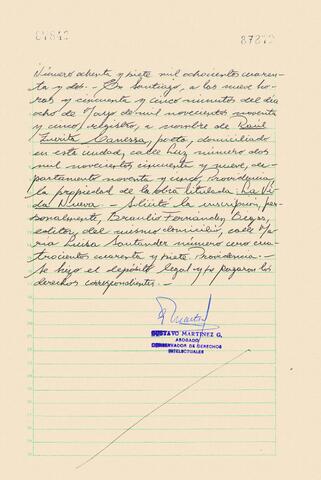 87842 87842
Número ochenta y siete mil ochocientos cuaren-
ta y dos.- En Santiago, a las nueve ho-
ras y cincuenta y cinco minutos del día
ocho de Mayo de mil novecientos noventa
y cinco, registro, a nombre de Raúl
Zurita Canessa, poeta, domiciliado
en esta ciudad, calle Luz número dos
mil novecientos cincuenta y nueve, de-
partamento noventa y cinco, Providencia,
la propiedad de la obra titulada: La Vi-
da Nueva.- Solicitó la inscripción, per-
sonalmente, Braulio Fernández,
editor, del mismo domicilio, calle Ma-
ría Luisa Santander número cero cua-
trocientos cuarenta y siete, Providencia.-
Se hizo el depósito legal y se pagaron los
derechos correspondientes.-
GUSTAVO MARTINEZ G.
ABOGADO
CONSERVADOR DE DERECHOS
INTELECTUALES